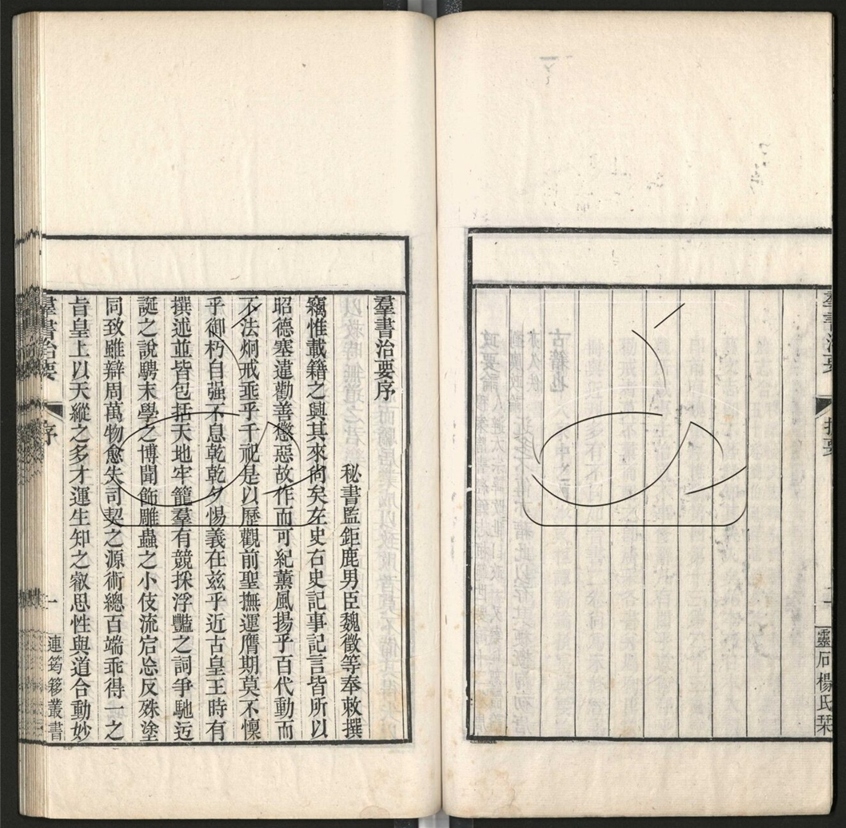 羣書治要
靈石楊氏栞
羣書治要序
秘書監鉅鹿男臣魏徵等奉敕撰
竊惟載籍之興其來尙矣左史右史記事記言皆所以
昭德塞違勸善懲惡故作而可紀薰風揚乎百代動而
不法炯戒垂乎千祀是以歷觀前聖撫運膺期莫不懍
乎御朽自强不息乾乾夕惕義在兹乎近古皇王時有
撰述並皆包括天地牢籠羣有競採浮豔之詞爭馳迃
誕之說騁末學之博聞飾雕蟲之小伎流宕忘反殊塗
同致雖辯周萬物愈失司契之源術總百端乖得一之
旨皇上以天縱之多才運生知之叡思性與道合動妙
羣書治要
序
一
連筠簃叢書